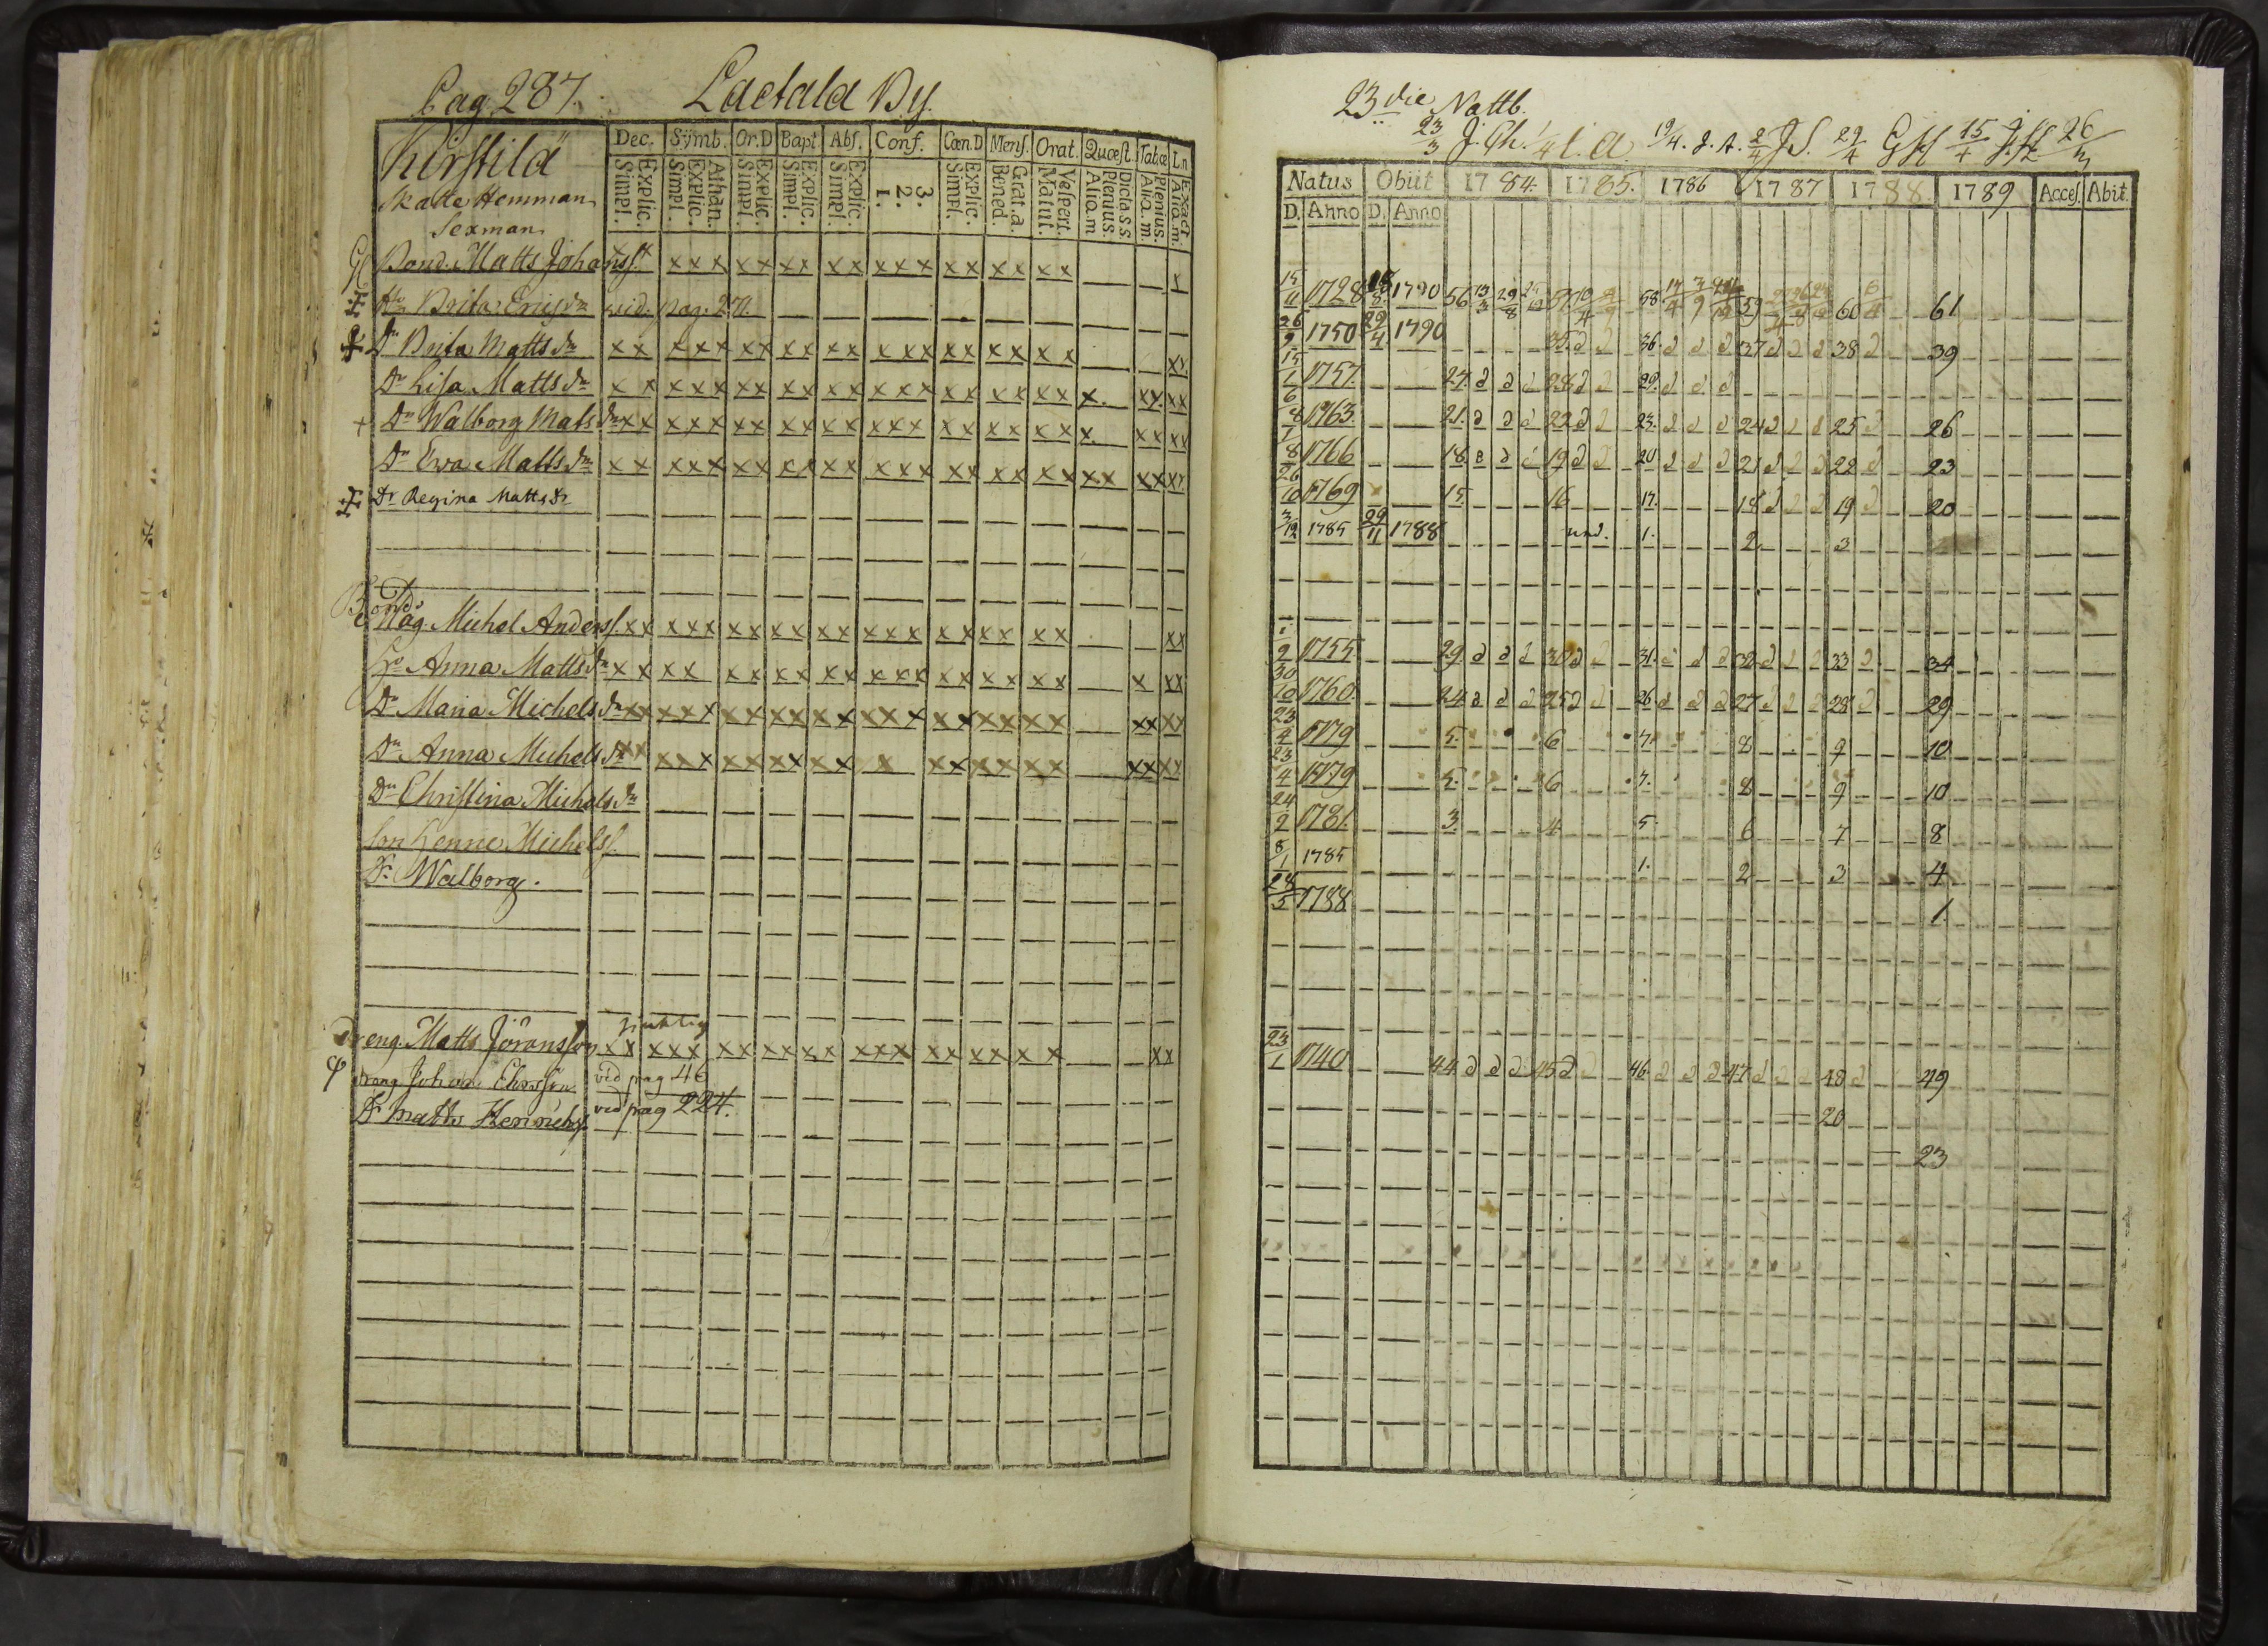 Pag. 287. Laetala By.
Kirstilä
Skatte Hemman
Sexman
Dec. Sÿmb. Or. D Bapt. Abs. Conf. Cœn. D Mens. Orat. Quæst. Tab.œ Ln
Explic. Simpl. Athan. Explic. Simpl. Explic. Simpl. Explic. Simpl. Explic. Simpl. 3. 2. 1. Explic. Simpl. Grat. a. Bened. Vespert. Matut. Dicta s.s. Plenius. Aliq. m Plenius. Aliq. m. Exact Aliq. m.
Bond. Matts Johanss. x x x x x x x x x x x x x x x x x x x x
Brita Ericsdr vid. pag. 271.
Dr Brita Mattsdr x x x x x x x x x x x x x x x x x x x x x x
Dr Lisa Mattsdr x x x x x x x x x x x x x x x x x x x x x. x x x x
Dr Walborg Matsdr x x x x x x x x x x x x x x x x x x x x x. x x x x
Dr Ewa Mattsdr x x x x x x x x x x x x x x x x x x x x x x x x x x
Dr Regina Mattsdr
Bond
Måg. Michel Anderss. x x x x x x x x x x x x x x x x x x x x x x
H:o Anna Mattsdr x x x x x x x x x x x x x x x x x x x x x x
Dr Maria Michelsdr x x x x x x x x x x x x x x x x x x x x x x x x
Dr Anna Michelsdr x x x x x x x x x x x x x x x x x x x x x x
Dr Christina Michelsdr
Son Henric Michelss.
Dr Walborg.
Dreng Matts Jöransson x x x x x x x x x x x x x x x x x x x x x x
dräng Johan vid pag 46
Dr Matts Henrichss. vid pag 224.
23 die Nattb.
23/3 J. Ch. 1/4 l. a. 19/4. J. A. 2/4 J S. 29/4 G H 15/4 26/3
Natus Obiit 1784. 1785. 1786 1787 1788. 1789 Acces. Abit.
D. Anno D. Anno
15/11 1728 1790 56 13/3 29/8 58 59 60 61
26/9 1750 29/4 1790 35. d d 36. d d d 37 d d d 38 d 39
15/1 1757. 27. d d d 28 d d 29. d d d
6/8 1763. 21. d d d 22 d d 23. d d d 24 d d d 25 d 26
1/8 1766 18. d d d 19 d d 20 d d d 21 d d d 22 d 23
26/10 1769 15. 16 17. 18 d d d 19 d 20
3/12 1785 29/11 1788 und. 1. 2. 3
1/9 1755 29 d d d 30 d d 31. d d d 32 d d d 33 d 34
30/10 1760. 24 d d d 25 d d 26 d d d 27 d d d 28 d 29
23/4 1779 5. 6 7. 8 9 10
23/4 1779 5. 6 7. 8 9 10
24/2 1781. 3. 4. 5. 6 7 8
8/1 1785 1. 2 3 4
28/5 1788 1.
23/1 1740 44 d d d 45 d 46 d d d 47 d d d 48 d 49
20
23